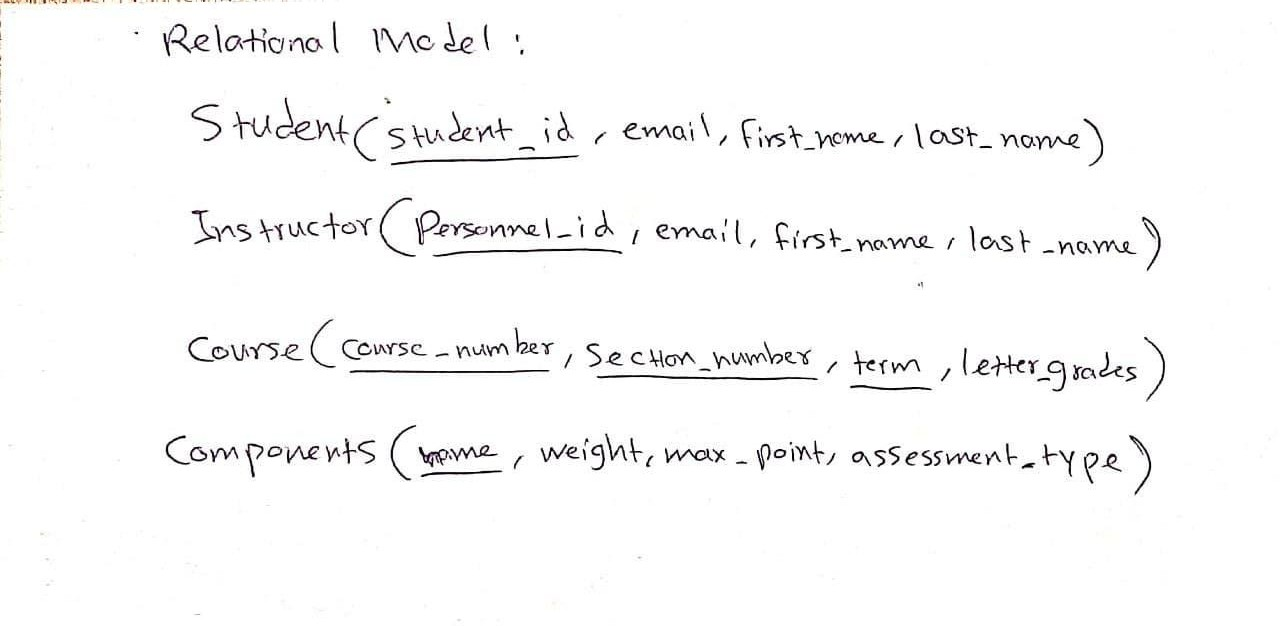 Relational Model :
Student(student_id, email, first_name, last_name)
Instructor(Personnel_id, email, first_name, last_name)
Course(course_number, section_number, term, letter_grades)
Components(name, weight, max_point, assessment_type)